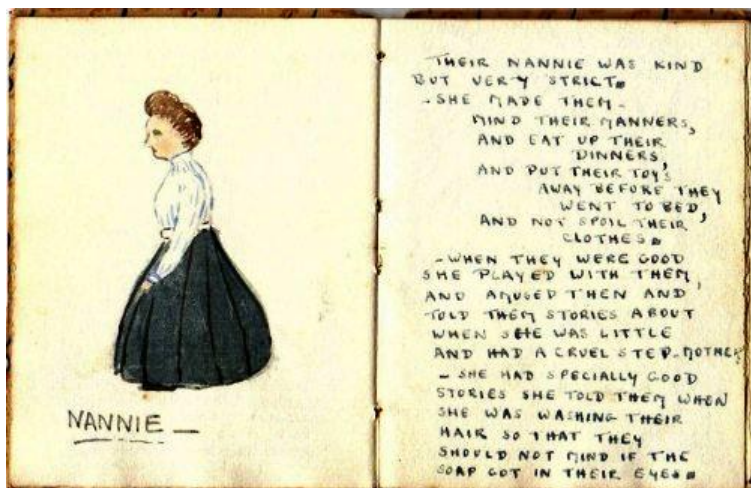 NANNIE —
THEIR NANNIE WAS KIND
BUT VERY STRICT.
- SHE MADE THEM -
MIND THEIR MANNERS,
AND EAT UP THEIR
DINNERS,
AND PUT THEIR TOYS
AWAY BEFORE THEY
WENT TO BED,
AND NOT SPOIL THEIR
CLOTHES.
- WHEN THEY WERE GOOD
SHE PLAYED WITH THEM,
AND AMUSED THEN AND
TOLD THEM STORIES ABOUT
WHEN SHE WAS LITTLE
AND HAD A CRUEL STEP-MOTHER
- SHE HAD SPECIALLY GOOD
STORIES SHE TOLD THEM WHEN
SHE WAS WASHING THEIR
HAIR SO THAT THEY
SHOULD NOT MIND IF THE
SOAP GOT IN THEIR EYES.